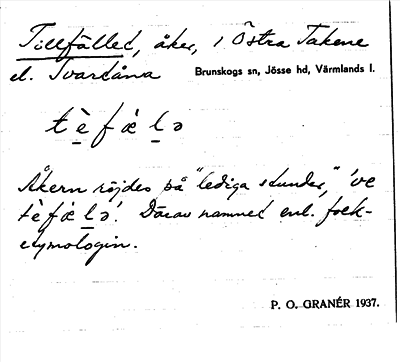 Tillfället, åker, i Östra Takene
el. Svartåna
Brunskogs sn, Jösse hd, Värmlands l.
tè̱fæ̀ḻə
Åkern röjdes på "lediga stunder," 've
tè̱fæ̀ḻə'. Därav namnet enl. folk-
etymologin.
P. O. GRANÉR 1937.